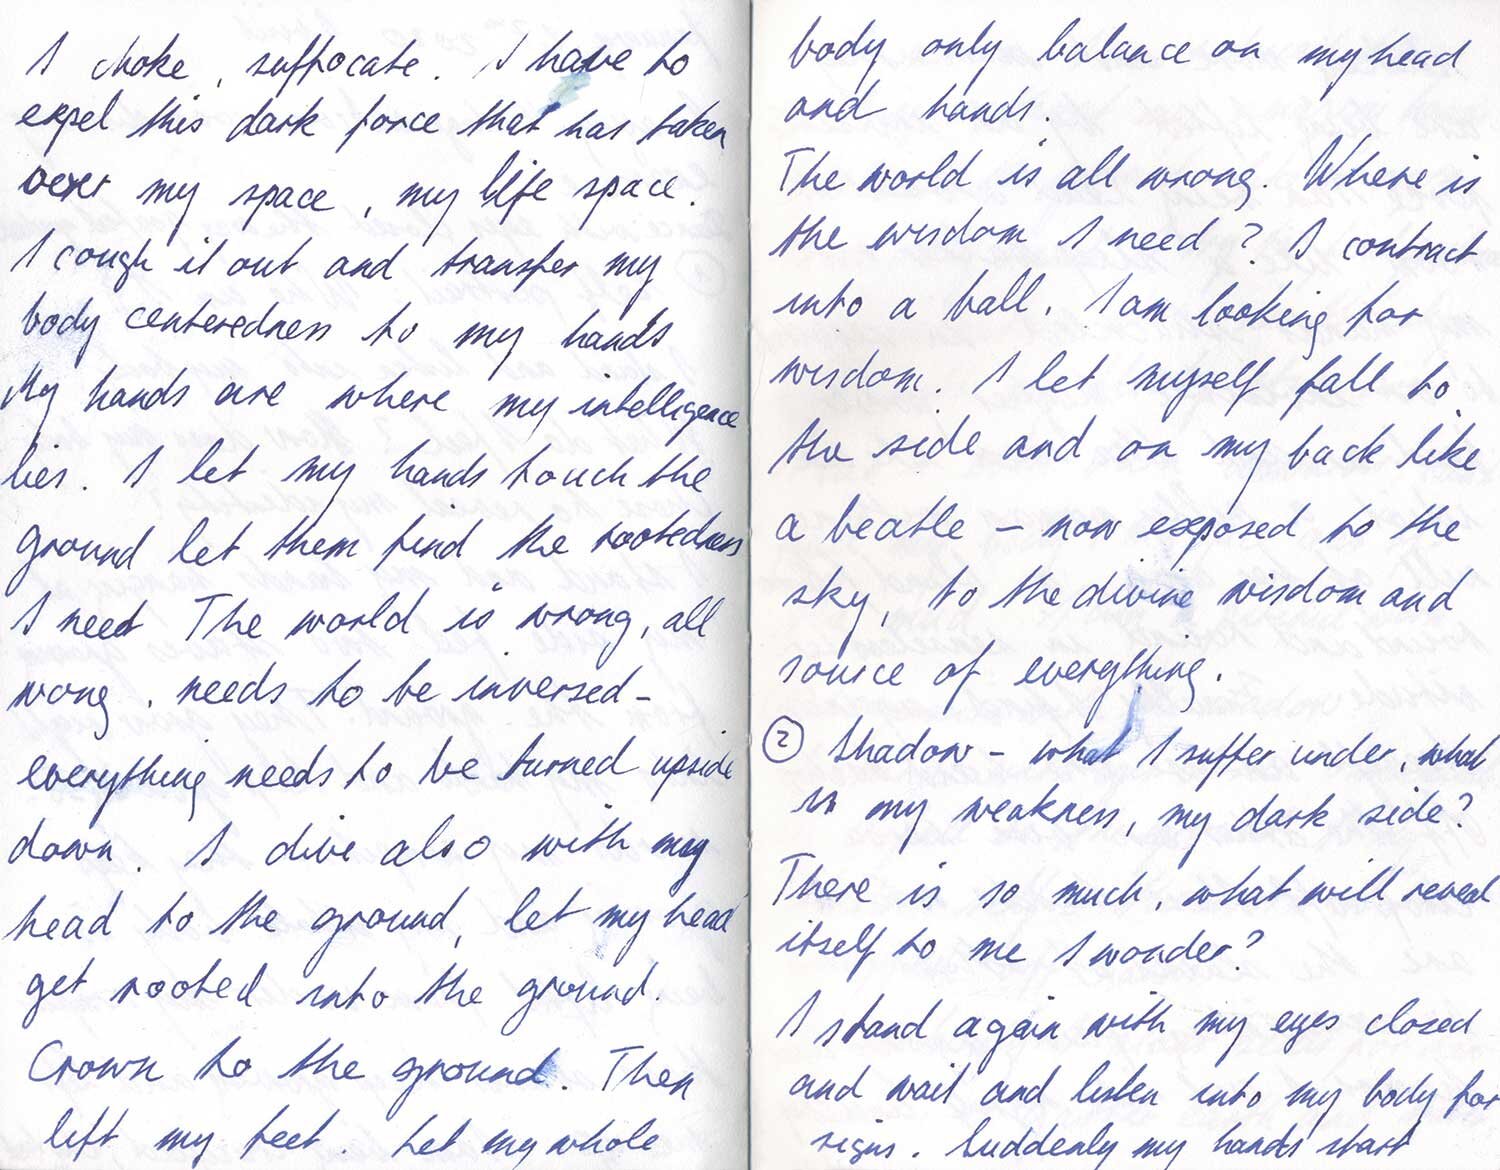 I choke, suffocate. I have to
expel this dark force that has taken
over my space, my life space.
I cough it out and transfer my
body centeredness to my hands
My hands are where my intelligence
lies. I let my hands touch the
ground let them find the rootedness
I need The world is wrong, all
wrong. needs to be inversed -
everything needs to be turned upside
down. I dive also with my
head to the ground, let my head
get rooted into the ground.
Crown to the ground. Then
lift my feet. Let my whole
body only balance on my head
and hands.
The world is all wrong. Where is
the wisdom I need? I contract
into a ball. I am looking for
wisdom. I let myself fall to
the side and on my back like
a beatle - now exposed to the
sky, to the divine wisdom and
source of everything.
② Shadow - what I suffer under, what
is my weakness, my dark side?
There is so much, what will reveal
itself to me I wonder?
I stand again with my eyes closed
and wait and listen into my body for
signs. Suddenly my hands start